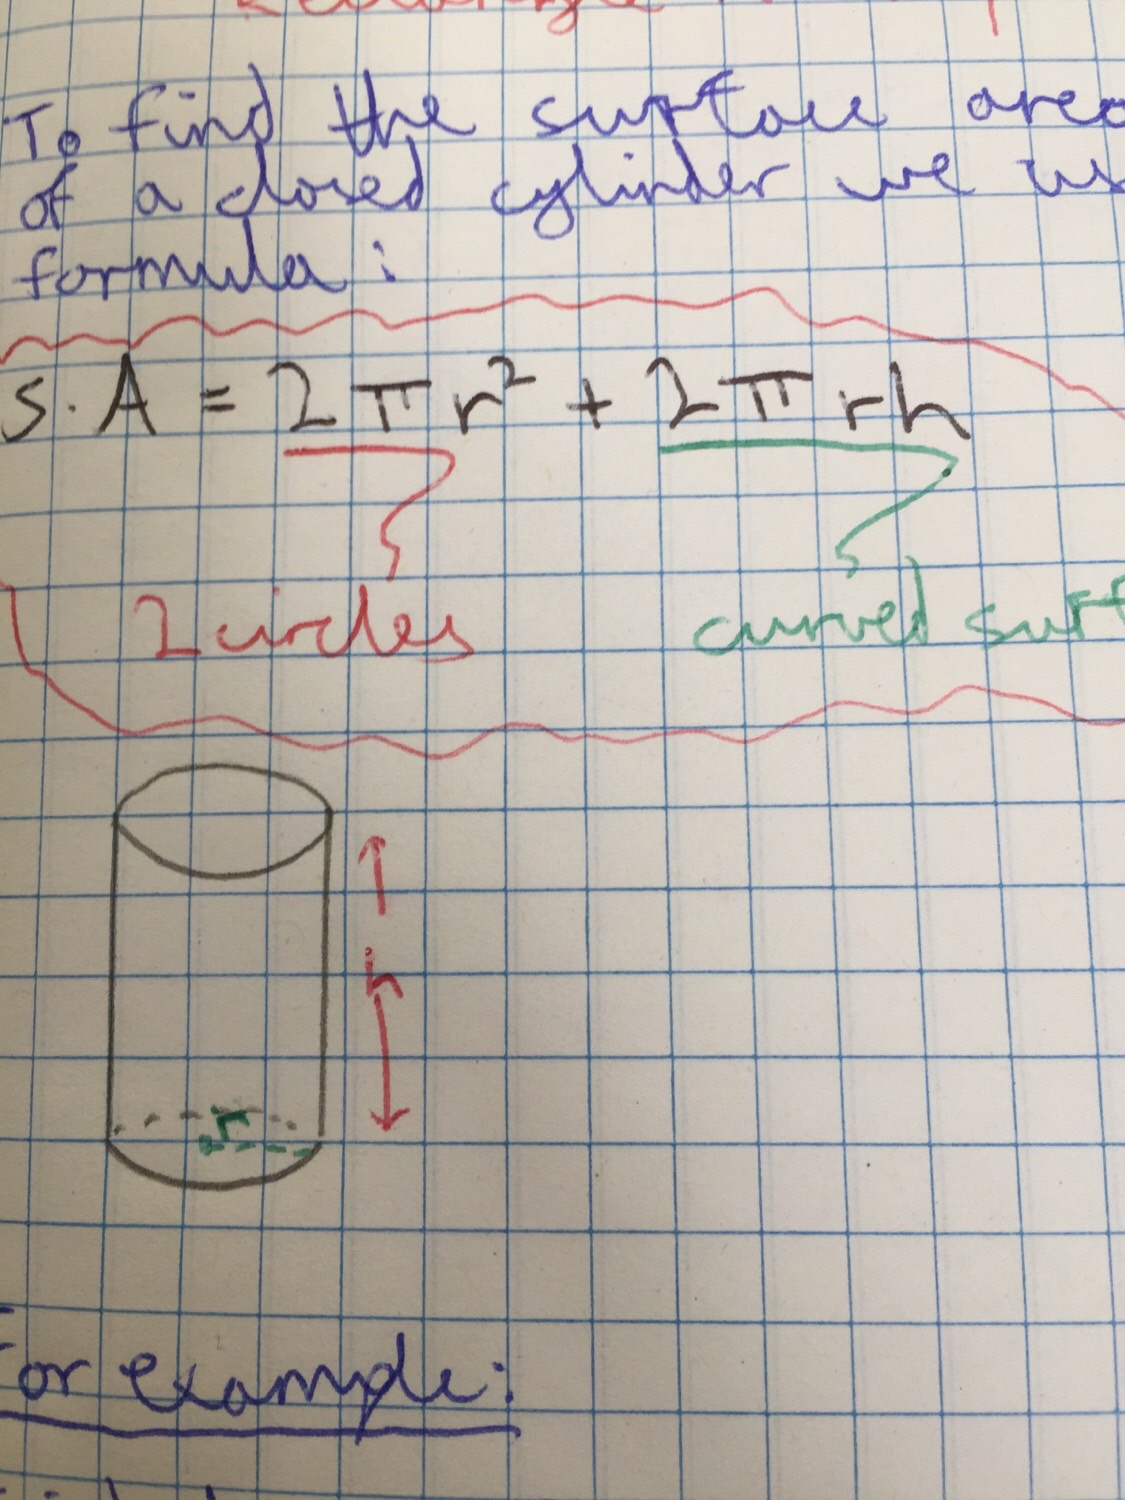 Rectangle
To find the surface area
of a closed cylinder we us
formula:
S.A = 2πr² + 2πrh
2 circles curved surf
h
r
For example: